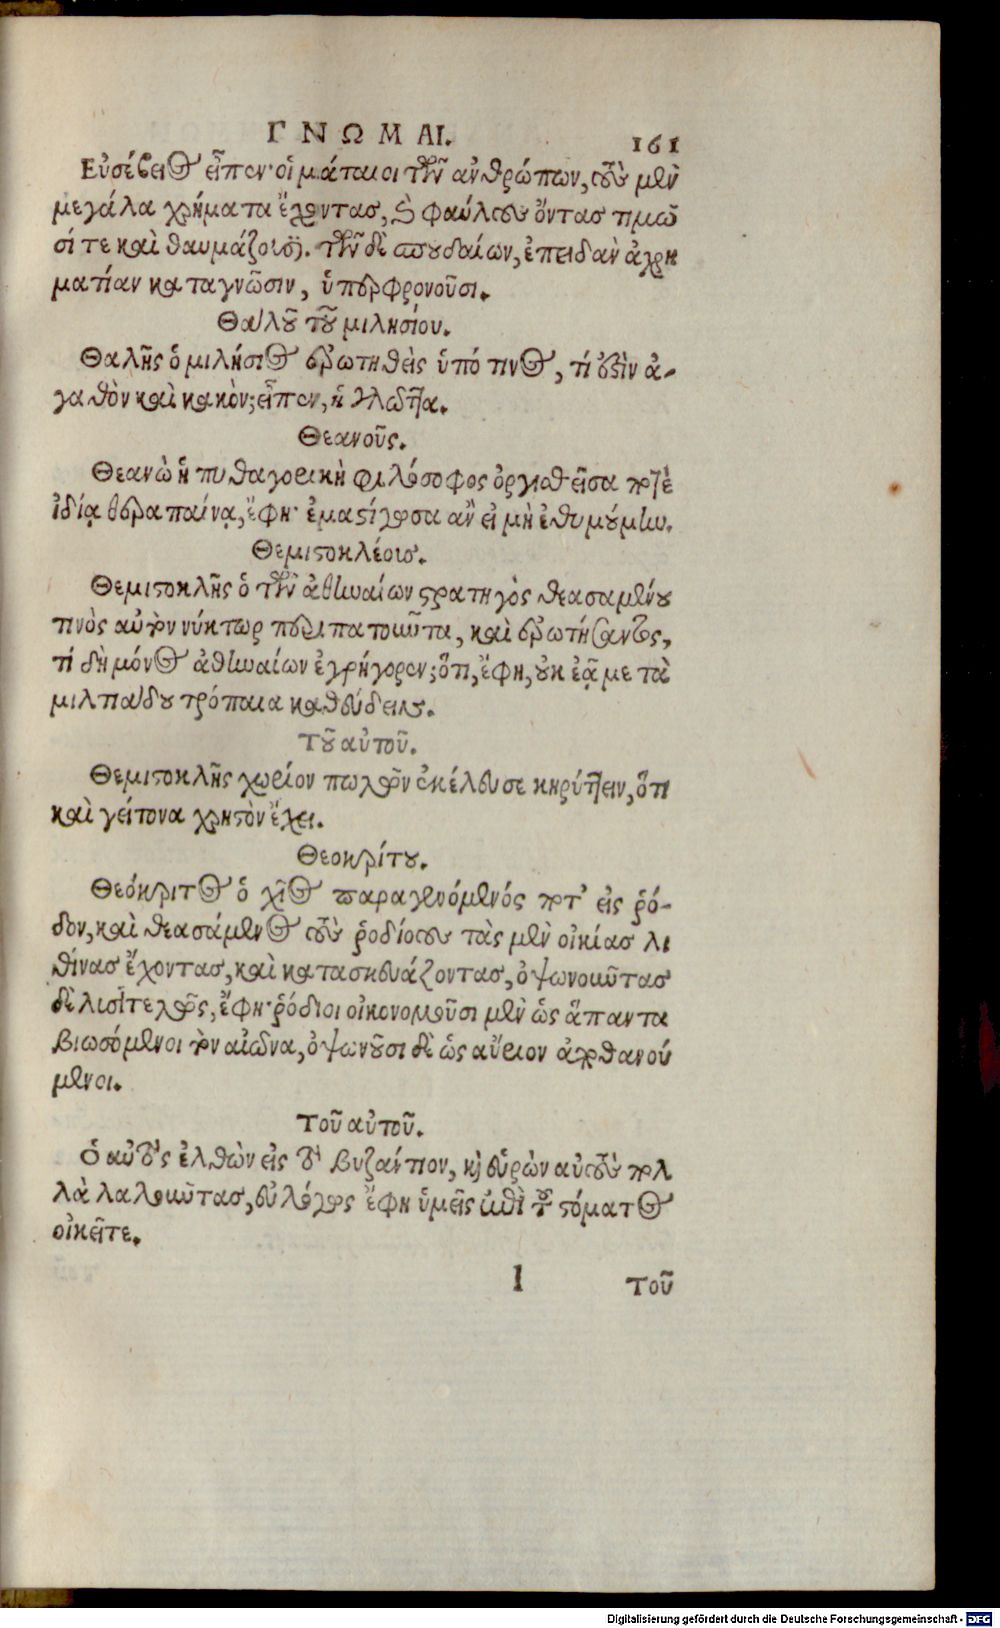 ΓΝΩΜΑΙ. 161
Εὐσέβειος εἶπεν· οἱ μάταιοι τῶν ἀνθρώπων, τοὺς μὲν
μεγάλα χρήματα ἔχοντας, καὶ φαύλους ὄντας τιμῶ
σί τε καὶ θαυμάζουσι. τῶν δὲ σπουδαίων, ἐπειδὰν ἀχρη
ματίαν καταγνῶσιν, ὑπερφρονοῦσι.
Θαλοῦ τοῦ μιλησίου.
Θαλῆς ὁ μιλήσιος ἐρωτηθεὶς ὑπό τινος, τί ἐστὶν ἀ-
γαθὸν καὶ κακὸν; εἶπεν, ἡ γλῶττα.
Θεανοῦς.
Θεανὼ ἡ πυθαγορικὴ φιλόσοφος ὀργισθεῖσα ποτὲ
ἰδίᾳ θεραπαίνᾳ, ἔφη· ἐμαστίγωσα ἂν εἰ μὴ ἐθυμούμην.
Θεμιστοκλέους.
Θεμιστοκλῆς ὁ τῶν ἀθηναίων στρατηγὸς θεασαμένου
τινὸς αὐτὸν νύκτωρ περιπατοῦντα, καὶ ἐρωτήσαντος,
τί δὴ μόνος ἀθηναίων ἐγρήγορεν; ὅτι, ἔφη, οὐκ ἐᾷ με τὰ
μιλτιάδου τρόπαια καθεύδειν.
Τοῦ αὐτοῦ.
Θεμιστοκλῆς χωρίον πωλῶν ἐκέλευσε κηρύττειν, ὅτι
καὶ γείτονα χρηστὸν ἔχει.
Θεοκρίτου.
Θεόκριτος ὁ χῖος παραγενόμενός ποτ' εἰς ῥό-
δον, καὶ θεασάμενος τοὺς ῥοδίους τὰς μὲν οἰκίας λι
θίνας ἔχοντας, καὶ κατασκευάζοντας, ὀψωνοῦντας
δὲ λυσιτελῶς, ἔφη· ῥόδιοι οἰκονομοῦσι μὲν ὡς ἅπαντα
βιωσόμενοι τὸν αἰῶνα, ὀψωνοῦσι δὲ ὡς αὔριον ἀποθανού
μενοι.
Τοῦ αὐτοῦ.
Ὁ αὐτὸς ἐλθὼν εἰς τὸ Βυζάντιον, καὶ εὑρὼν αὐτοὺς πολ
λὰ λαλοῦντας, εὐλόγως ἔφη ὑμεῖς ἐπὶ τοῦ στόματος
οἰκεῖτε.
l Τοῦ
Digitalisierung gefördert durch die Deutsche Forschungsgemeinschaft - DFG